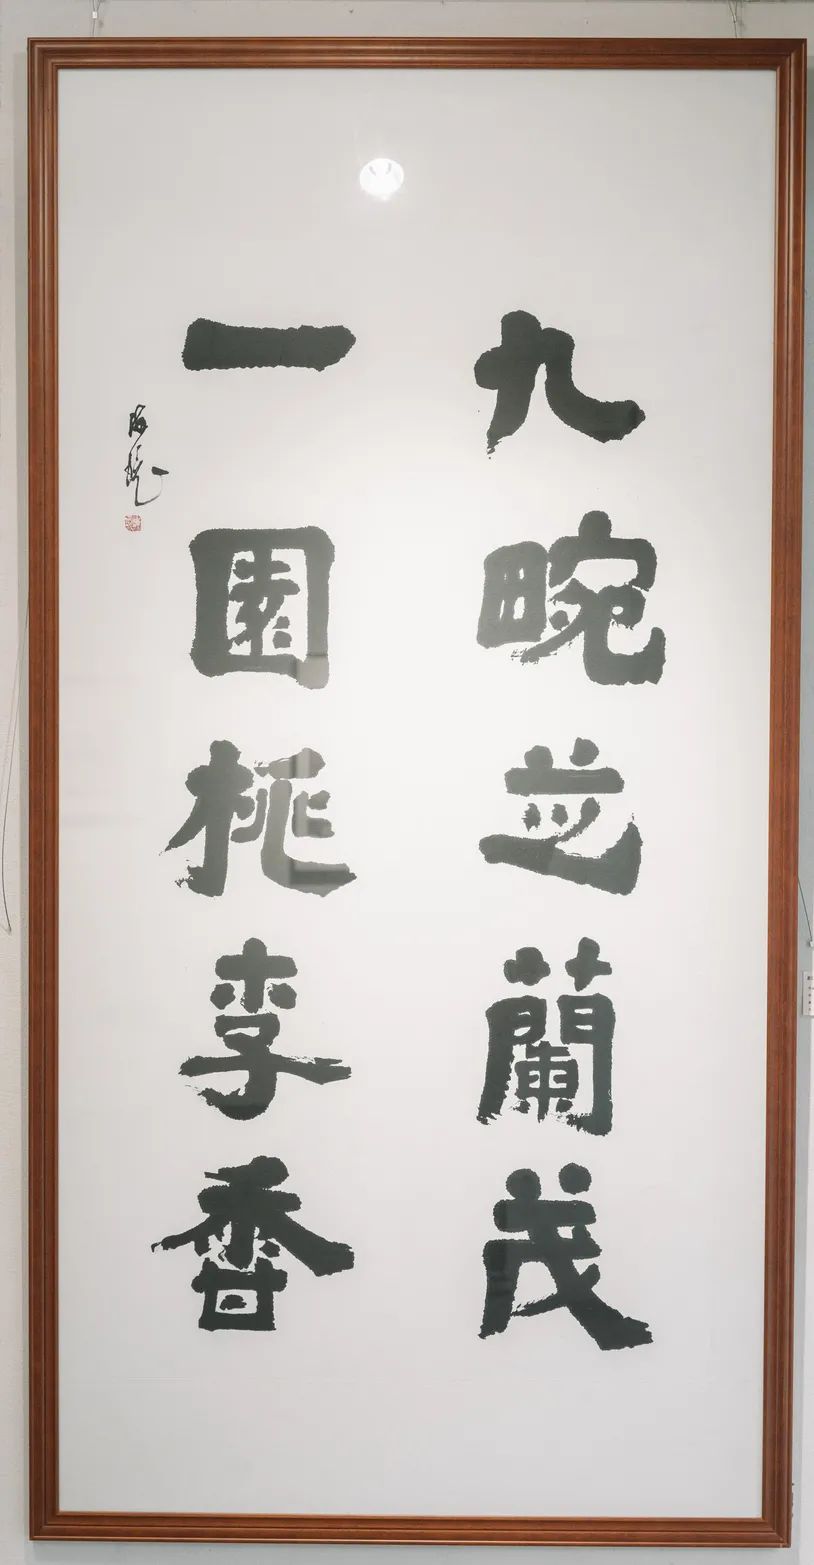 九畹芝蘭茂
一園桃李香